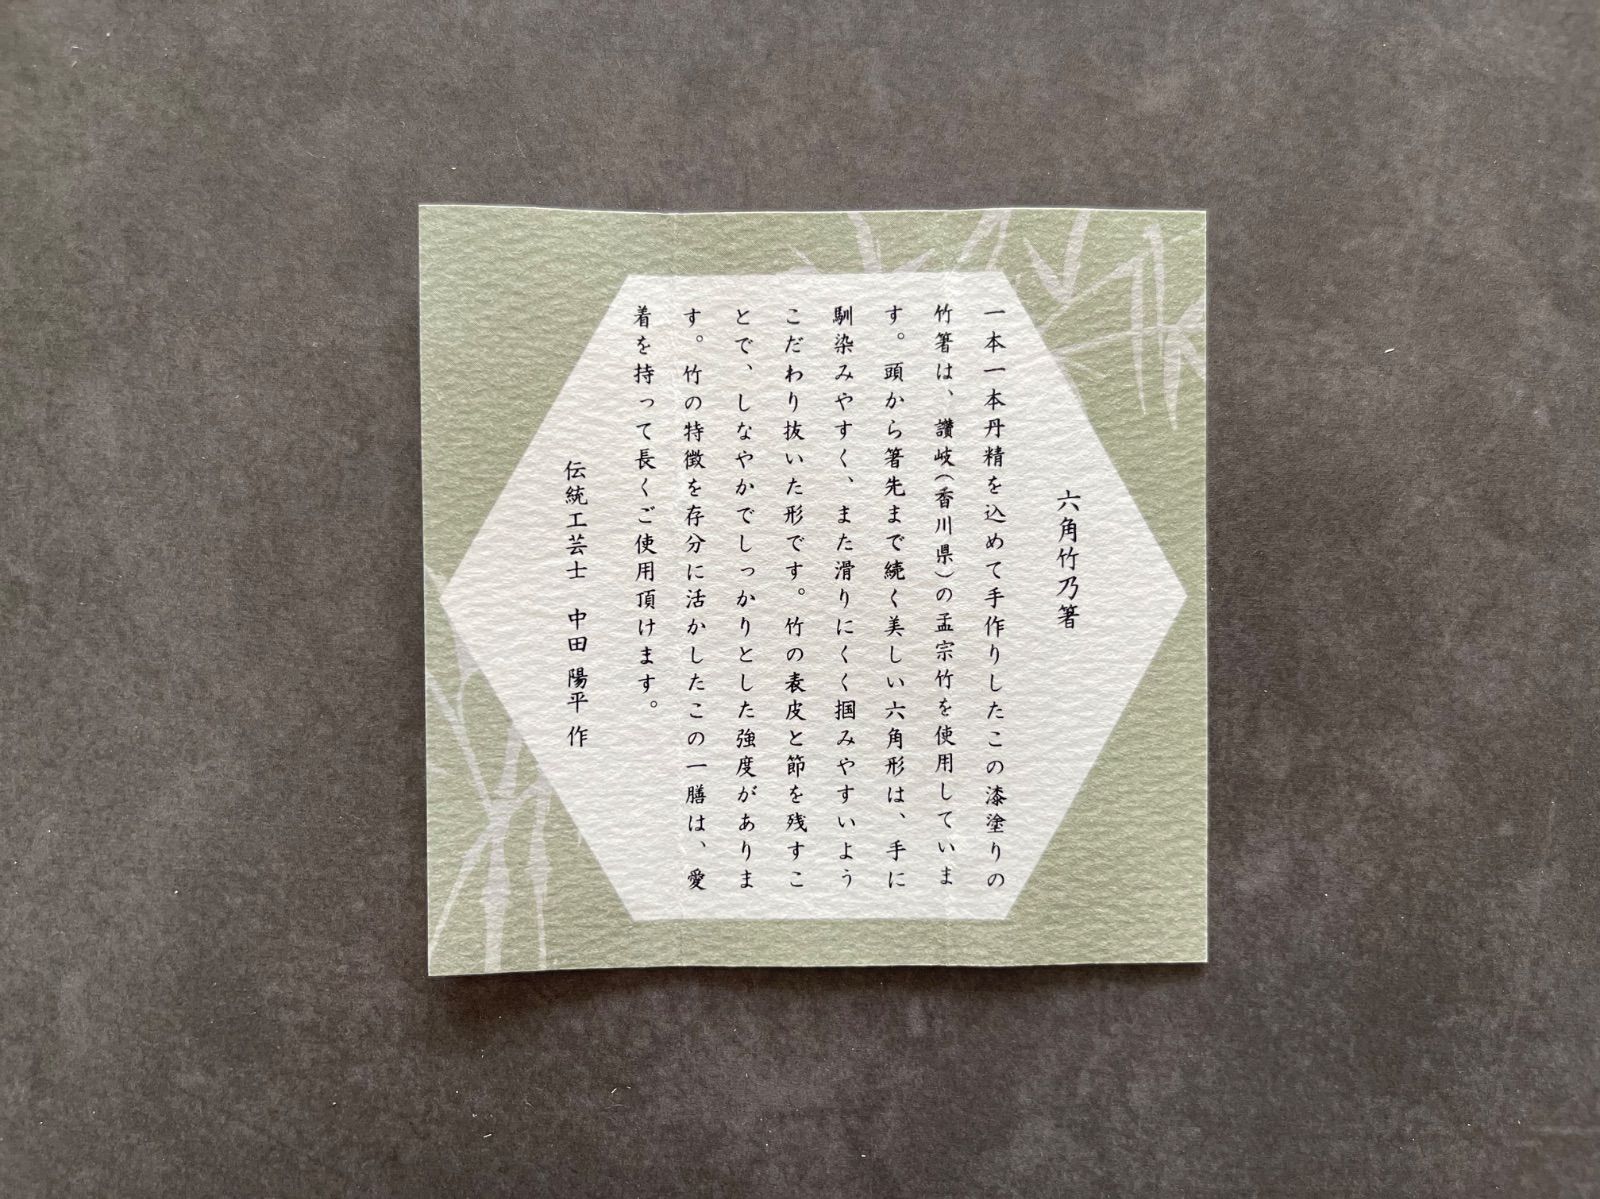 六角竹乃箸
一本一本丹精を込めて手作りしたこの漆塗りの
竹箸は、讃岐(香川県)の孟宗竹を使用していま
す。頭から箸先まで続く美しい六角形は、手に
馴染みやすく、また滑りにくく掴みやすいよう
こだわり抜いた形です。竹の表皮と節を残すこ
とで、しなやかでしっかりとした強度がありま
す。竹の特徴を存分に活かしたこの一膳は、愛
着を持って長くご使用頂けます。
伝統工芸士 中田 陽平 作